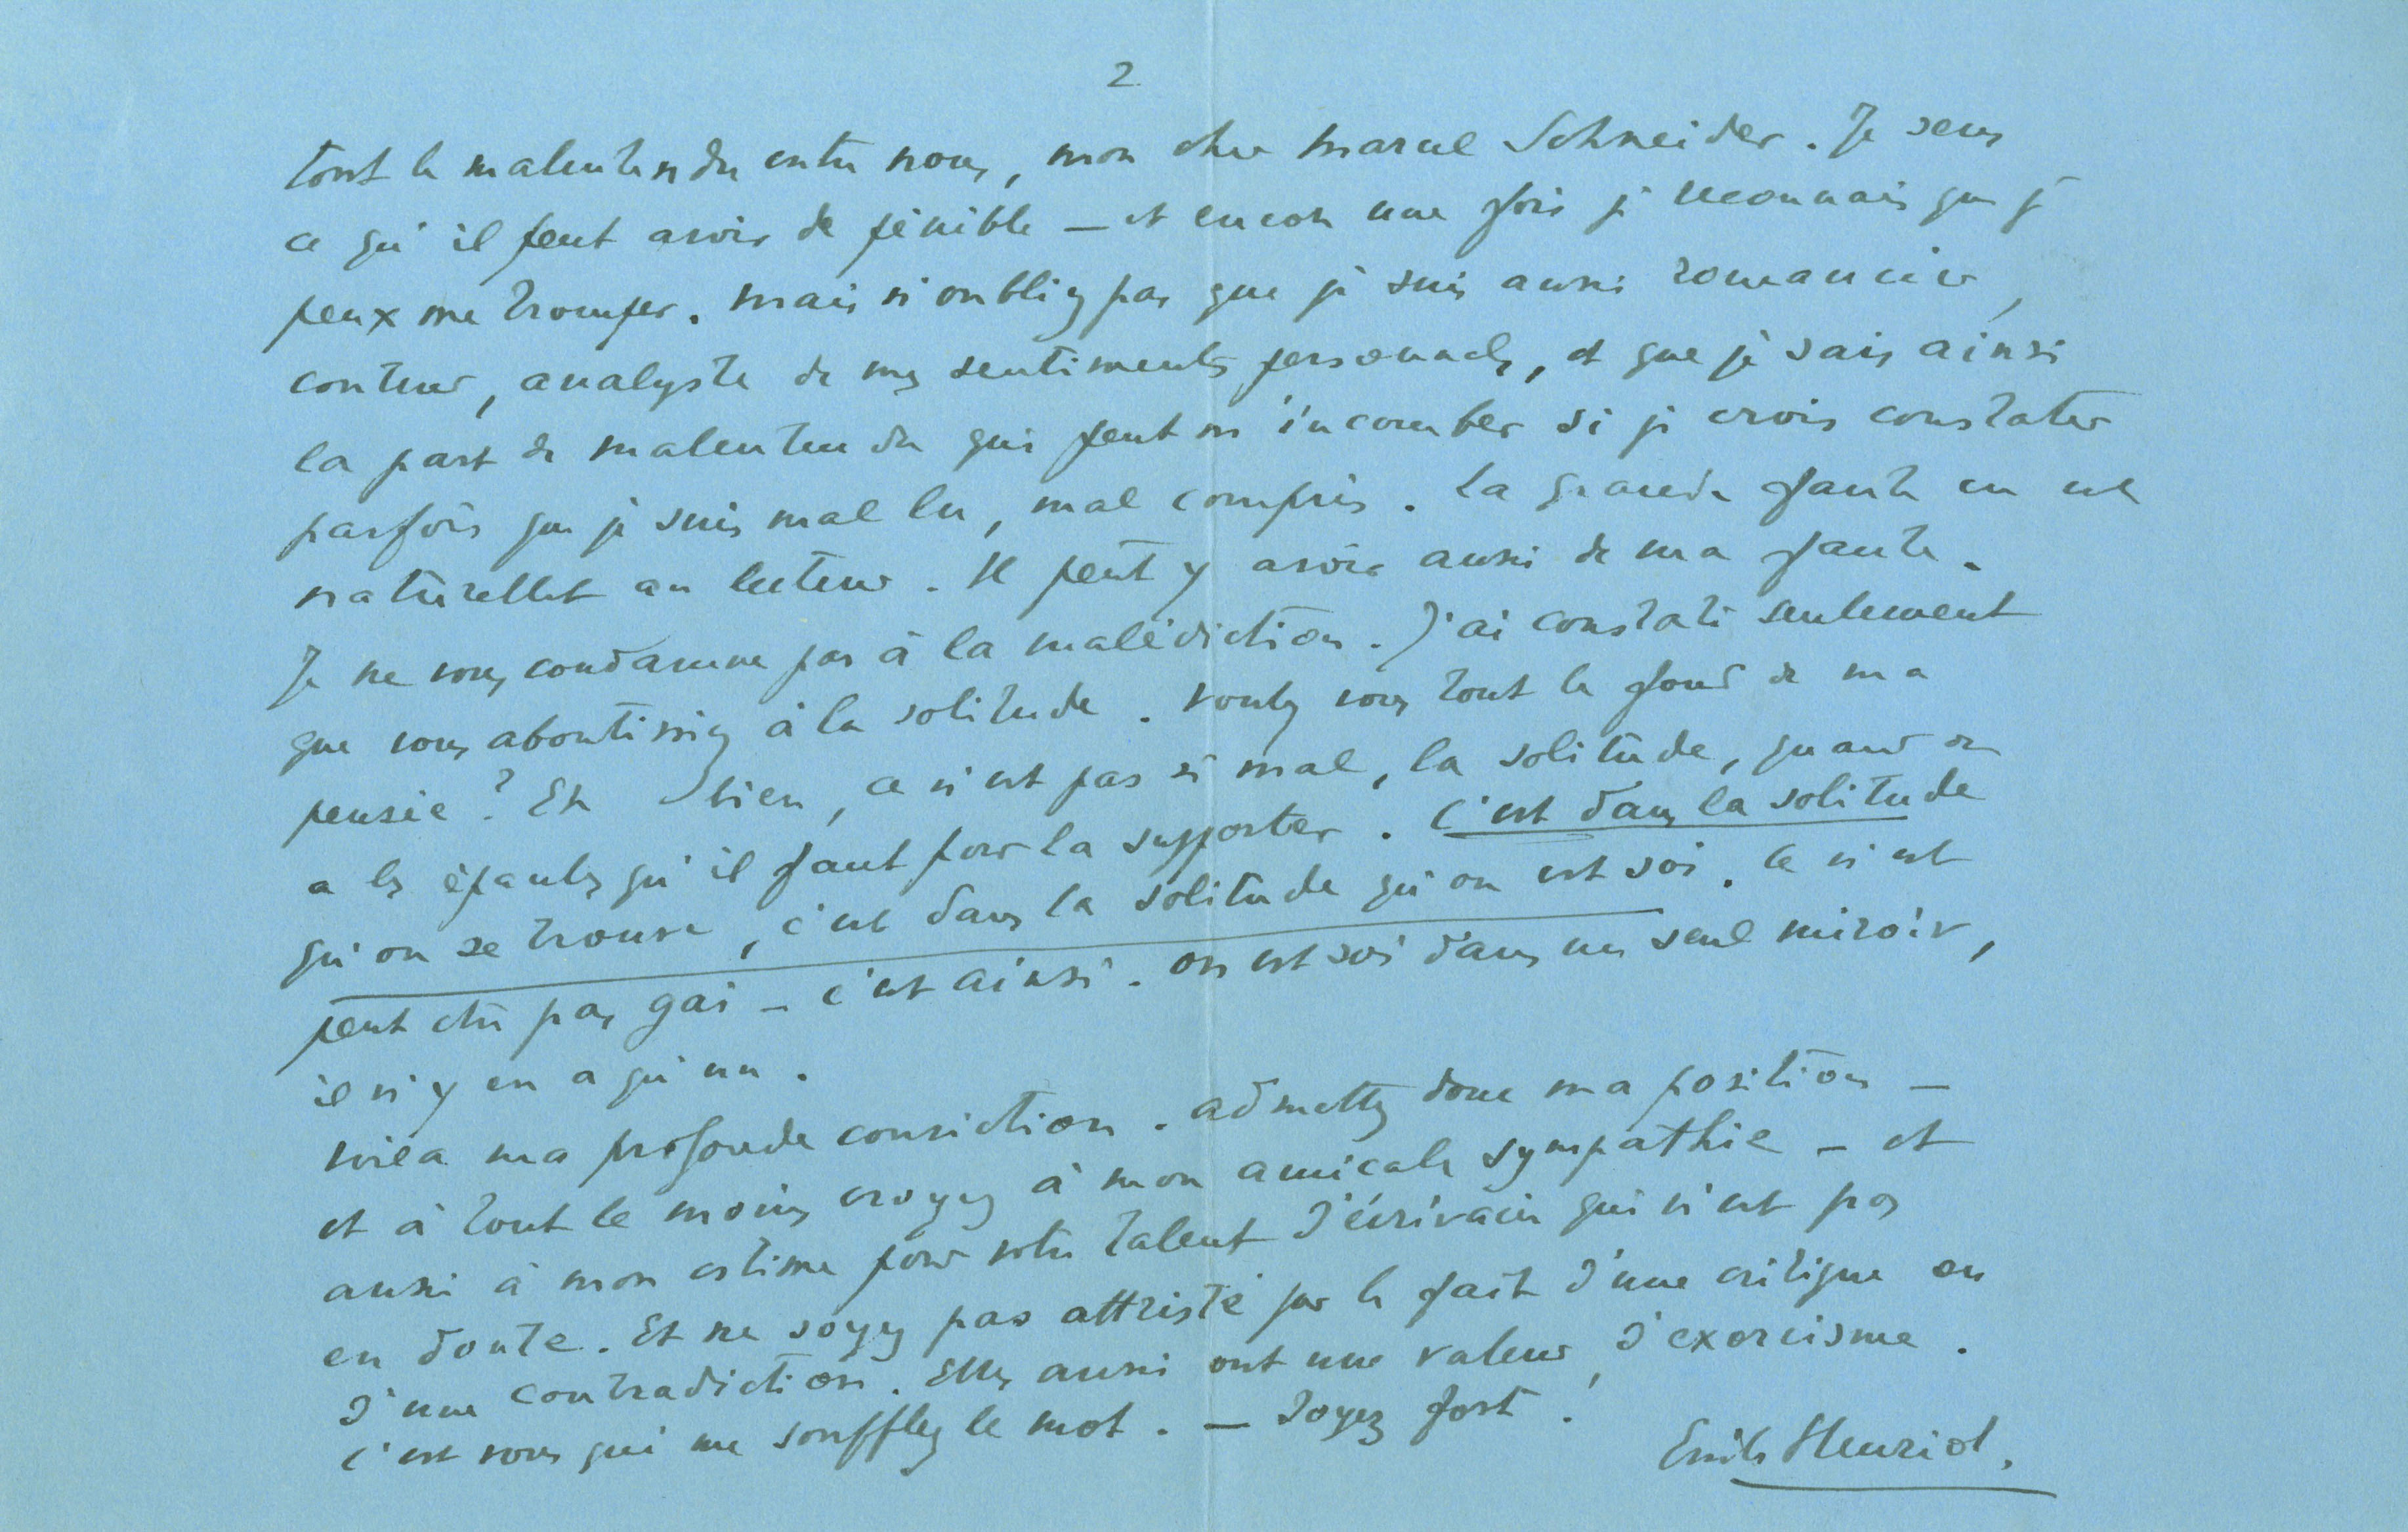 2
tout le malentendu entre nous, mon cher Marcel Schneider. Je sens
ce qu'il peut avoir de pénible – et encore une fois je reconnais que je
peux me tromper. Mais n'oubliez pas que je suis aussi romancier,
conteur, analyste de mes sentiments personnels, et que je sais ainsi
la part de malentendu qui peut m'incomber si je crois constater
parfois que je suis mal lu, mal compris. La grande faute en est
naturellet au lecteur. Il peut y avoir aussi de ma faute.
Je ne vous condamne pas à la malédiction. J'ai constaté seulement
que vous aboutissiez à la solitude. Voulez vous tout le fond de ma
pensée ? Eh bien, ce n'est pas si mal, la solitude, quand on
a les épaules qu'il faut pour la supporter. C'est dans la solitude
qu'on se trouve, c'est dans la solitude qu'on est soi. Ce n'est
peut être pas gai – c'est ainsi. On est soi dans un seul miroir,
il n'y en a qu'un.
Voilà ma profonde conviction. Admettez donc ma position –
et à tout le moins croyez à mon amicale sympathie – et
aussi à mon estime pour votre talent d'écrivain qui n'est pas
en doute. Et ne soyez pas attristé par le fait d'une critique ou
d'une contradiction. Elles aussi ont une valeur d'exorcisme.
C'est vous qui me soufflez le mot. – Soyez fort !
Emile Henriot.